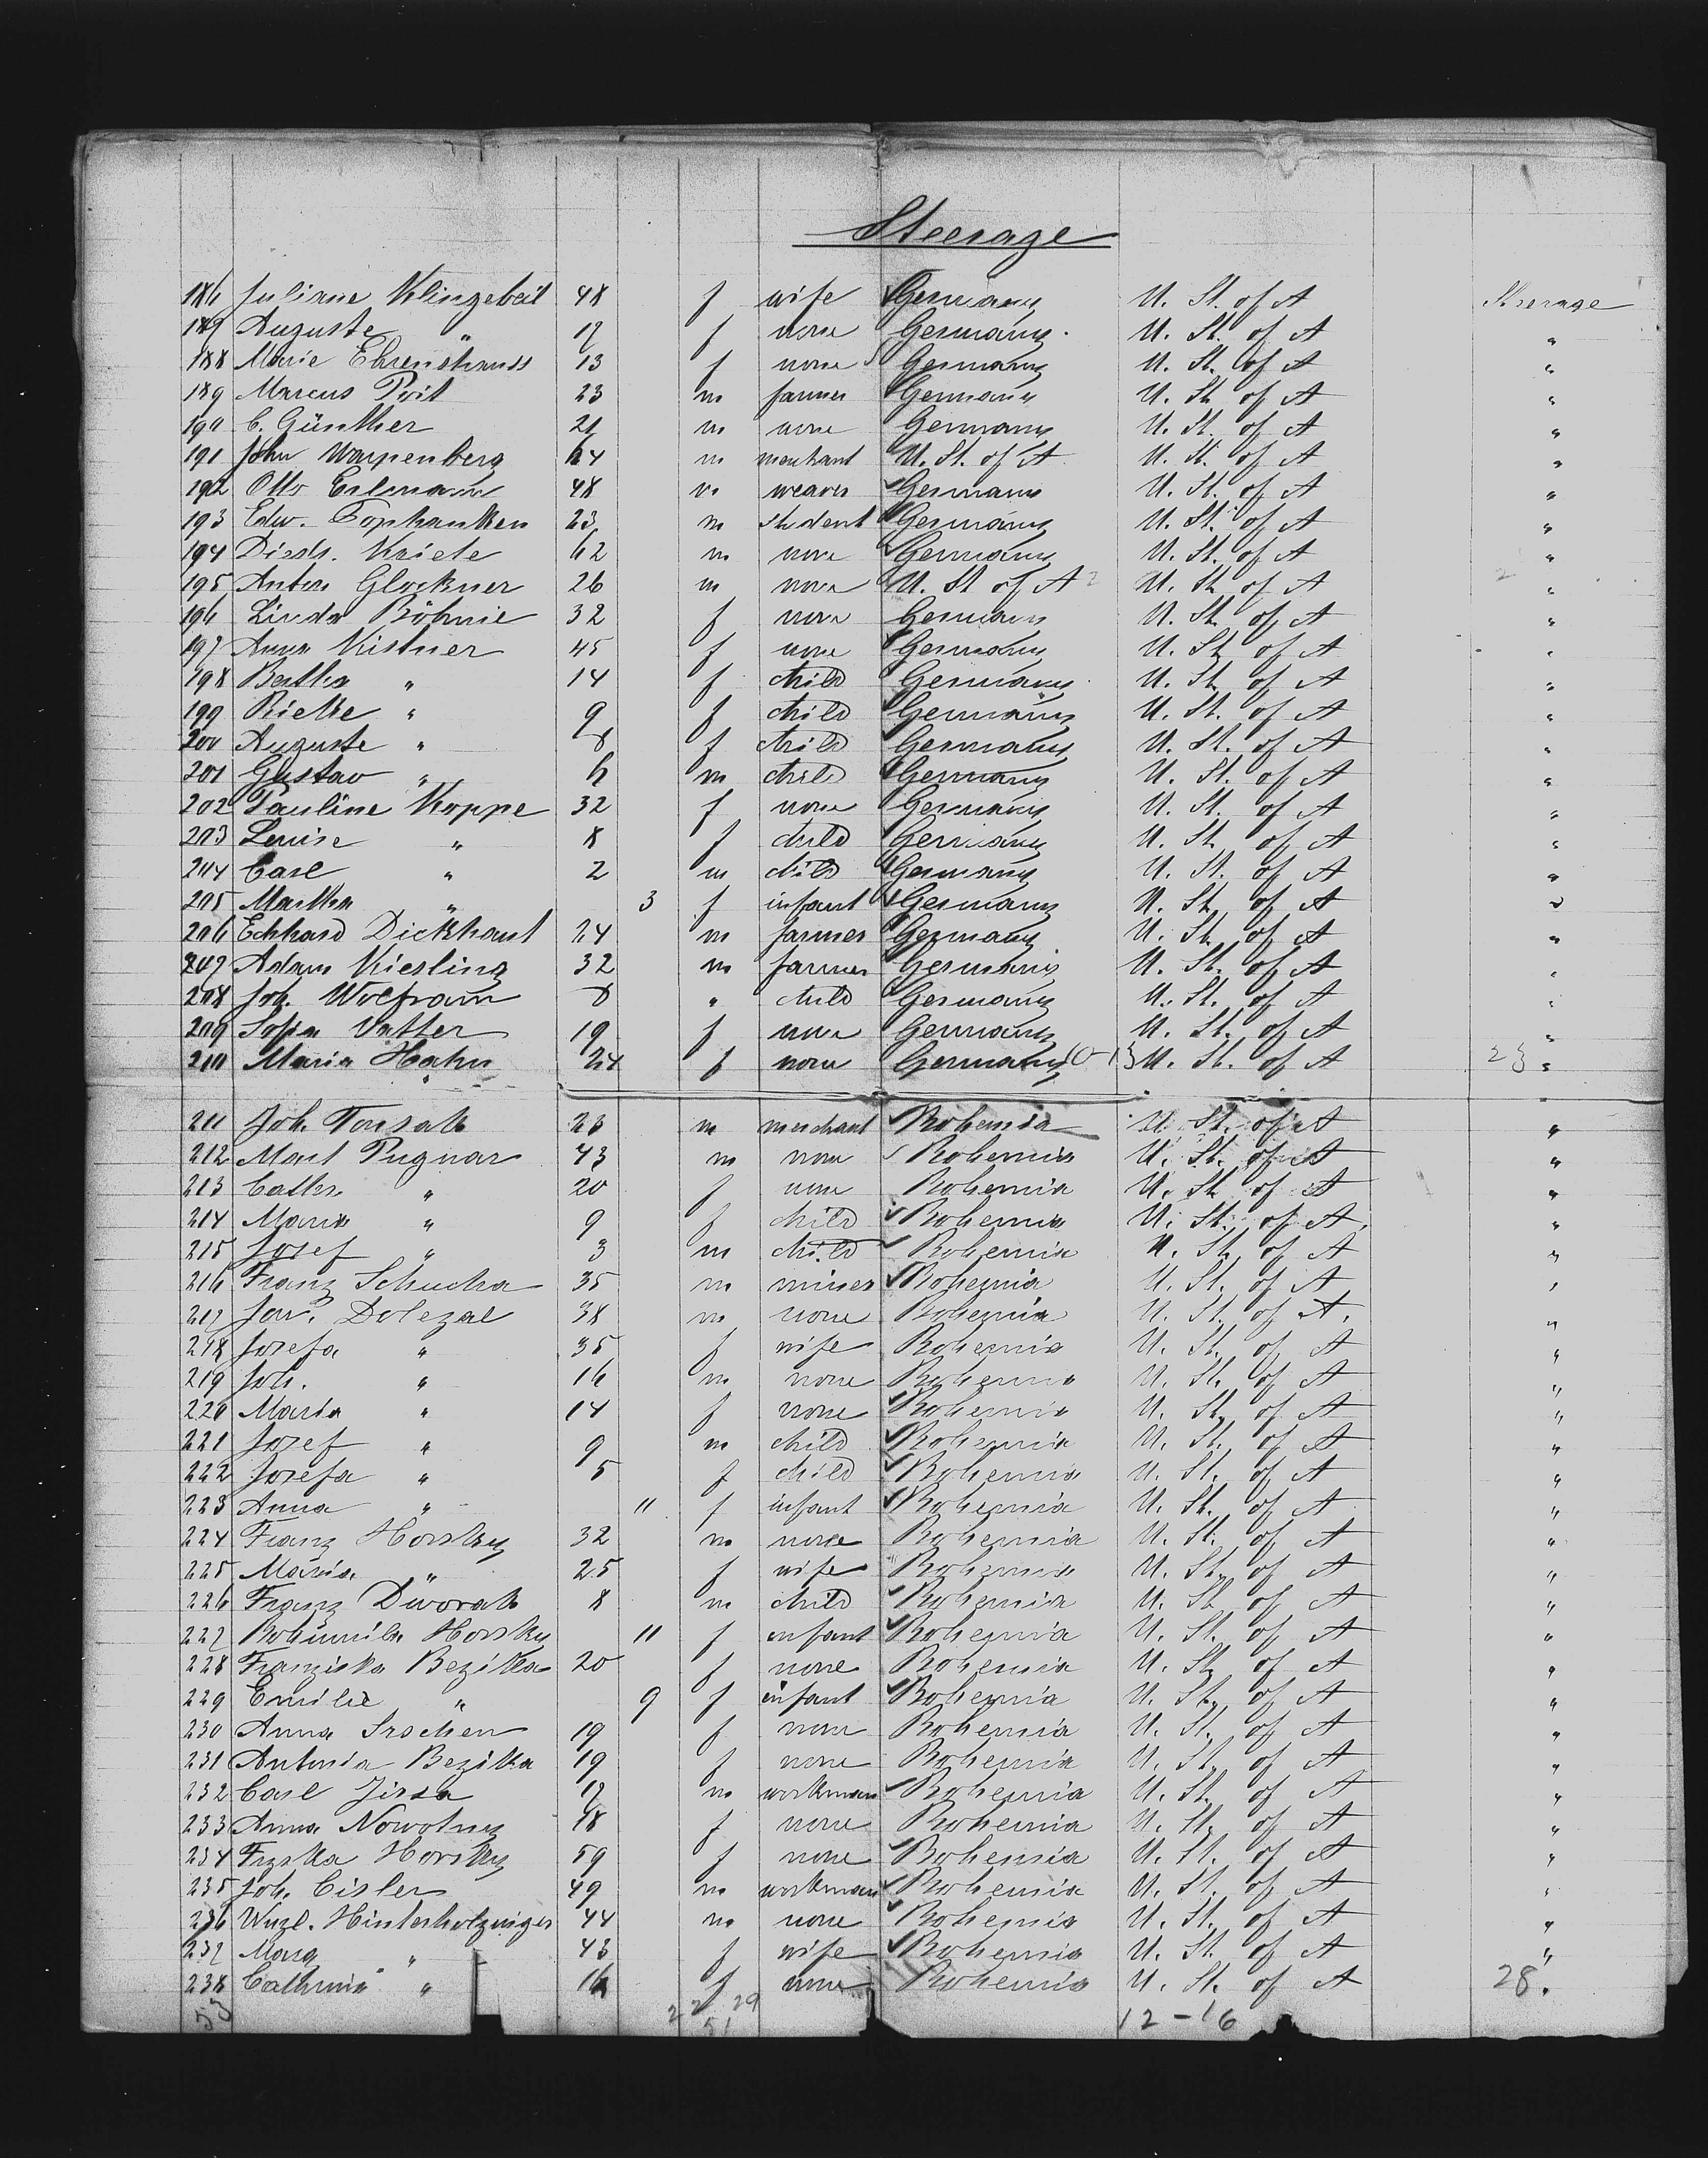 Steerage
186 Juliane Klingebeil 48 f wife Germany U. St. of A Steerage
187 Auguste " 17 f none Germany U. St. of A "
188 Marie Ehrenstrauss 13 f none Germany U. St. of A "
189 Marcus 23 m farmer Germany U. St. of A "
190 C. Günther 21 m none Germany U. St. of A "
191 John Warpenberg 64 m merchant U. St. of A U. St. of A "
192 Otto 48 m weaver Germany U. St. of A "
193 Edw. Tophanken 23 m student Germany U. St. of A "
194 Diedr. Kriete 62 m none Germany U. St. of A "
195 Anton Glockner 26 m none U. St of A 2 U. St. of A 2 "
196 Linda Böhnie 32 f none Germany U. St. of A "
197 Anna Kistner 45 f none Germany U. St. of A "
198 Bertha " 14 f child Germany U. St. of A "
199 Riekke " 9 f child Germany U. St. of A "
200 Auguste " 8 f child Germany U. St. of A "
201 Gustav " 6 m child Germany U. St. of A "
202 Pauline Koppe 32 f none Germany U. St. of A "
203 Louise " 8 f child Germany U. St. of A "
204 Carl " 2 m child Germany U. St. of A "
205 Martha " 3 f infant Germany U. St. of A "
206 Eckhard Dickhaut 24 m farmer Germany U. St. of A "
207 Adam Kiesling 32 m farmer Germany U. St. of A "
208 Joh. Wolfram 8 " child Germany U. St. of A "
209 Sofia Vatter 19 f none Germany U. St. of A "
210 Maria Hahn 24 f none Germany 10-13 U. St. of A 23 "
211 Joh. Tousak 23 m merchant Bohemia U. St. of A "
212 Mart Pugnar 43 m none Bohemia U. St. of A "
213 Cath. " 20 f none Bohemia U. St. of A "
214 Maria " 9 f child Bohemia U. St. of A. "
215 Josef " 3 m child Bohemia U. St. of A "
216 Franz Schucha 35 m miner Bohemia U. St. of A "
217 Jos. Dolezal 38 m none Bohemia U. St. of A. "
218 Josefa " 35 f wife Bohemia U. St. of A "
219 Joh. " 16 m none Bohemia U. St. of A "
220 Maria " 14 f none Bohemia U. St. of A "
221 Josef " 9 m child Bohemia U. St. of A "
222 Josefa " 5 f child Bohemia U. St. of A "
223 Anna " 11 f infant Bohemia U. St. of A "
224 Franz Horsky 32 m none Bohemia U. St. of A "
225 Maria " 25 f wife Bohemia U. St. of A "
226 Franz Dworak 8 m child Bohemia U. St. of A "
227 Bohumila Horsky 11 f infant Bohemia U. St. of A "
228 Franziska Bezitka 20 f none Bohemia U. St. of A "
229 Emilie " 9 f infant Bohemia U. St. of A "
230 Anna Srschen 19 f none Bohemia U. St. of A "
231 Antonia Bezitka 19 f none Bohemia U. St. of A "
232 Carl Jirsa 17 m workman Bohemia U. St. of A "
233 Anna Nowotny 18 f none Bohemia U. St. of A "
234 Frzska Horsky 59 f none Bohemia U. St. of A "
235 Joh. Cisler 49 m workman Bohemia U. St. of A "
236 Wnzl. Hinterholzinger 44 m none Bohemia U. St. of A "
237 Marg " 43 f wife Bohemia U. St. of A "
238 Catharina " 16 f none Bohemia U. St. of A 28 "
53 22 29 12-16
51